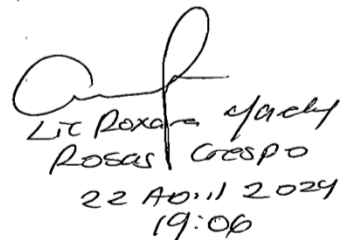 Lic Roxana Yaely
Rosas Crespo
22 Abril 2024
19:06